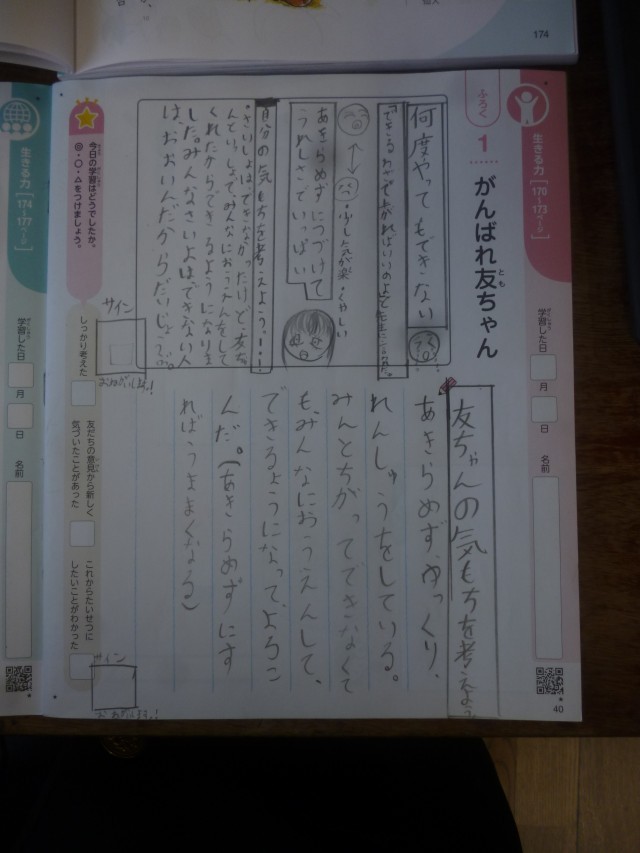 174
生きる力
[170~173ページ]
学習した日
月
日
名前
40
ふろく
1
がんばれ友ちゃん
何度やってもできない
少し元気が楽・くやしい
あきらめずにつづけて
うれしさでいっぱい
自分の気もちを考えよう!!!
・さいしょは、できなかったけど、友ち
くれたからできるようになりま
した。みんなさいしょは、できない人
は、おおいんだからだいじょうぶ。
サイン
おねがいします!
友ちゃんの気もちを考えよう
あきらめず、ゆっくり、
れんしゅうをしている。
みんとちがってできなくて
も、みんなにおうえんして、
できるようになって、よろこ
んだ。(あきらめずにす
ればうまくなる)
サイン
おねがいします!
今日の学習はどうでしたか。
◎・○・△をつけましょう。
しっかり考えた
友だちの意見から新しく
気づいたことがあった
これからたいせつに
したいことがわかった
生きる力
[174~177ページ]
学習した日
月
日
名前